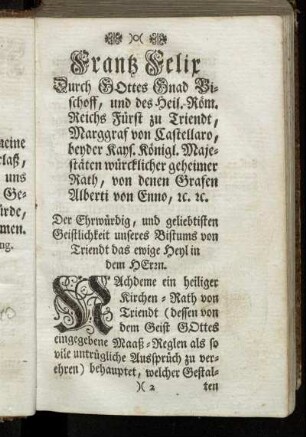 )o(
Frantz Felix
Durch GOttes Gnad Bi-
schoff, und des Heil. Röm.
Reichs Fürst zu Triendt,
Marggraf von Castellaro,
beyder Kays. Königl. Maje-
stäten würcklicher geheimer
Rath, von denen Grafen
Alberti von Enno, ꝛc. ꝛc.
Der Ehrwürdig, und geliebtisten
Geistlichkeit unseres Bistums von
Triendt das ewige Heyl in
dem HErrn.
NAchdeme ein heiliger
Kirchen-Rath von
Triendt (dessen von
dem Geist GOttes
eingegebene Maaß-Reglen als so
vile untrügliche Aussprüch zu ver-
ehren) behauptet, welcher Gestal-
)( 2 ten
meine
rlaß,
uns
Ge-
ürde,
men.
ng.